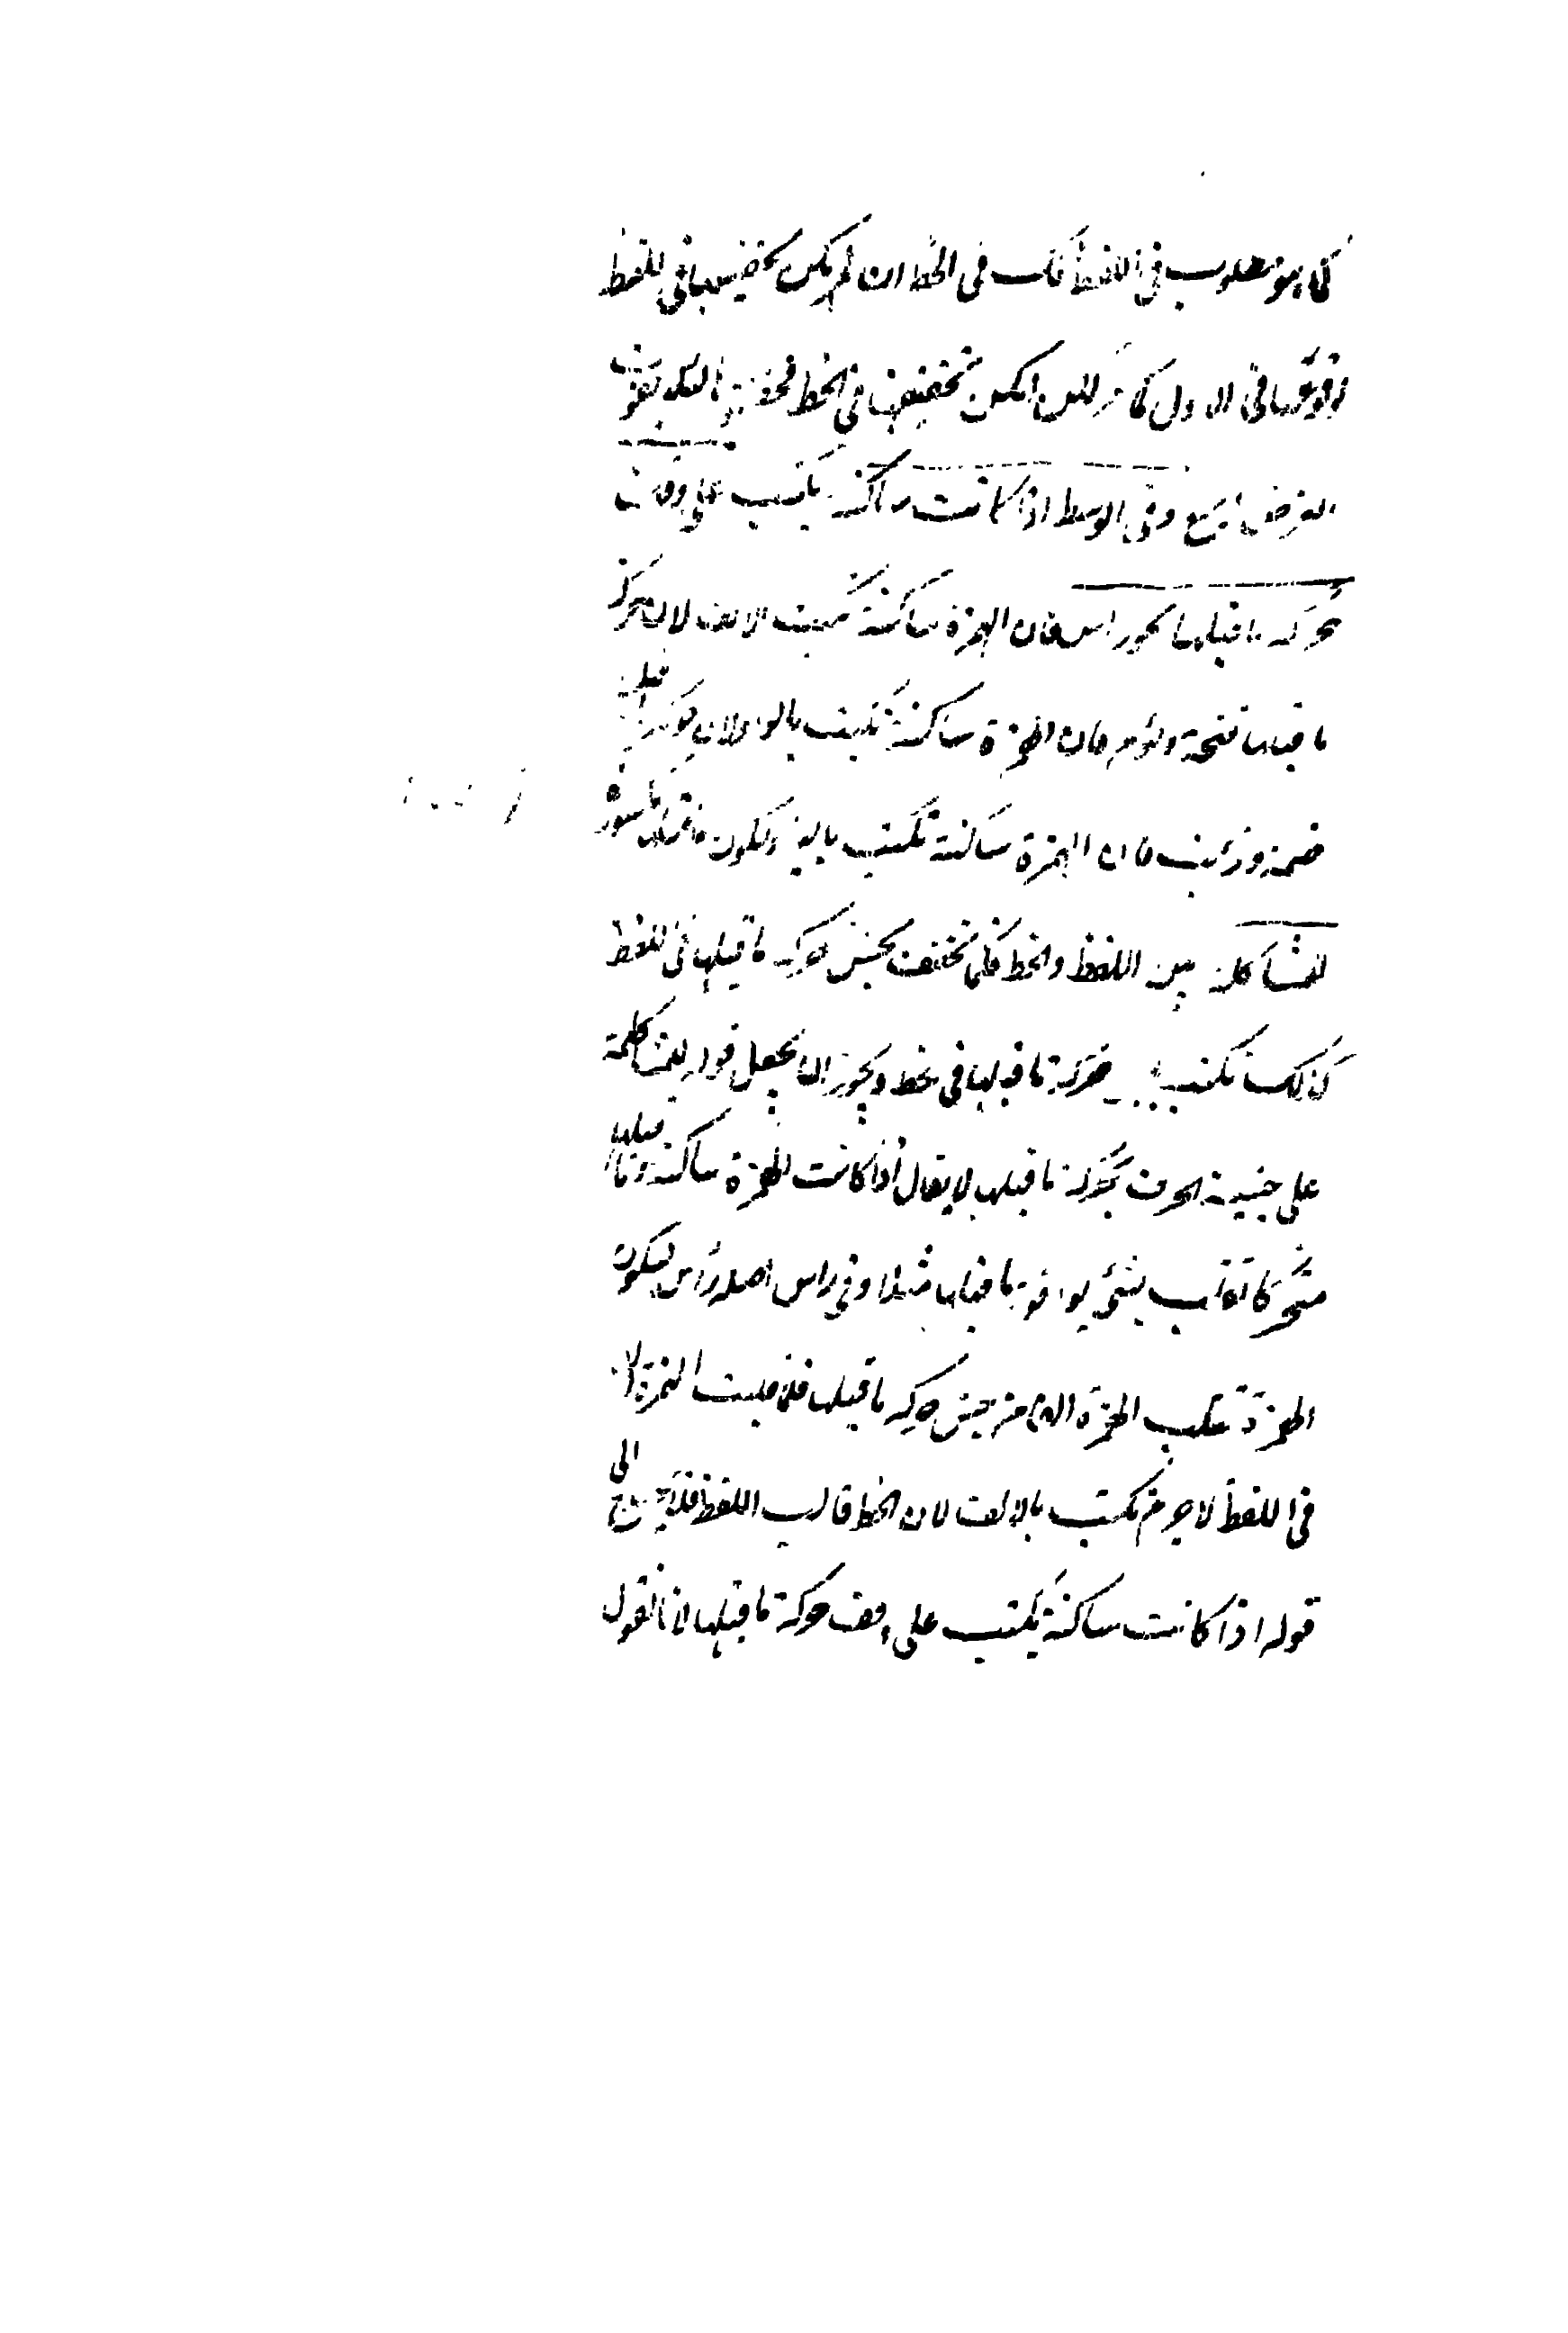 كما هو مطلوب في اللفظ كذلك في الخط وان لم يكن تخفيفها في اللفظ
لوقوعها في الاول كما مر لكن امكن تخفيفها في الخط فخففت
الغرض اجمع وفي الوسط اذا كانت ساكنة يكتب على وفق
حركة ما قبلها نحو راس فان الهمزة ساكنة كتبت الالف لان حركة
ما قبلها فتحة ولؤم فان الهمزة ساكنة تكتب بالواو لان حركة ما قبلها
ضمة وذئب فان الهمزة ساكنة تكتب بالياء لكون ما قبلها مكسورة
للمشاكلة بين اللفظ والخط فكما تخفف بجنس حركة ما قبلها في اللفظ
كذلك تكتب حركة ما قبلها في الخط ويجوز ان يجعل قوله للمشاكلة
على جنسية الحرف بحركة ما قبلها لا يقال اذا كانت الهمزة ساكنة وما قبلها
متحركا تقلب بشئ يوافق ما قبلها مثلا وفي راس اصله رأس لسكون
الهمزة تقلب الهمزة الفا من جنس حركة ما قبلها فلما قلبت الهمزة الفا
في اللفظ لاجرم تكتب بالالف لان الخط قالب اللفظ فلا يحتاج الى
قوله اذا كانت ساكنة يكتب على وفق حركة ما قبلها لانا نقول